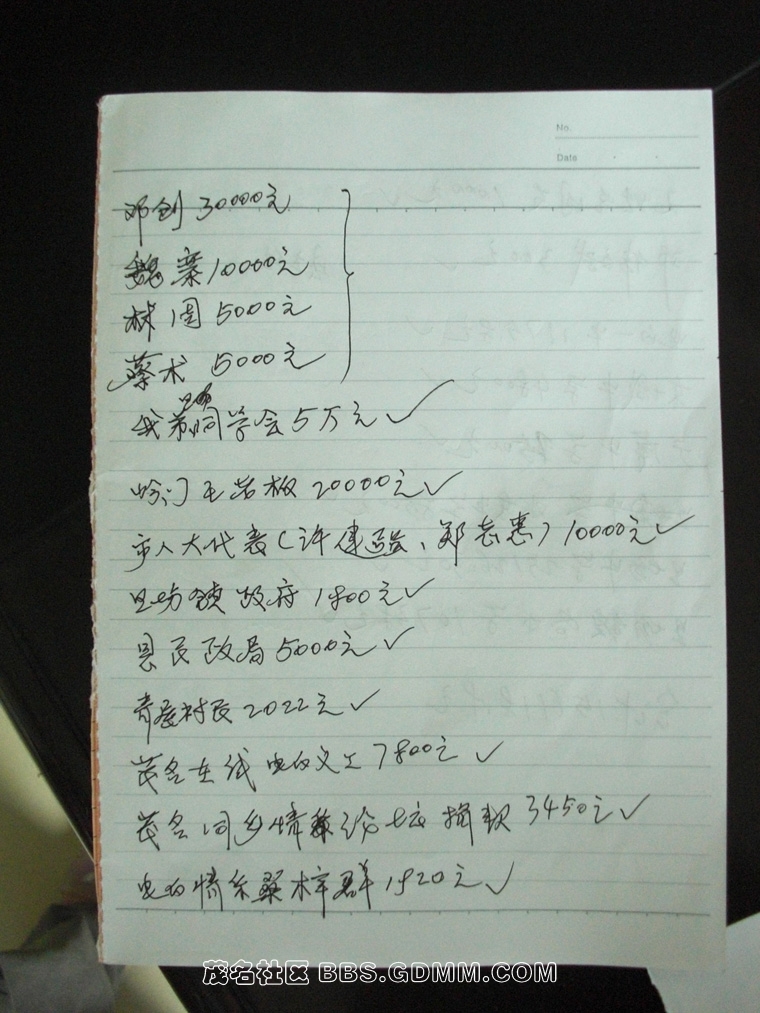 No.
Date
邓剑 30000元
魏寨 10000元
林国 5000元
蔡术 5000元
同学会5万元 ✓
岭门毛老板 20000元 ✓
市人大代表(许建强、郑志惠) 10000元 ✓
旦场镇政府 1800元 ✓
县民政局 5000元 ✓
村民 2022元 ✓
茂名在线电白义工 7800元 ✓
茂名同乡情 捐款 3450元 ✓
电白情系桑梓群 1920元 ✓
茂名社区 BBS.GDMM.COM